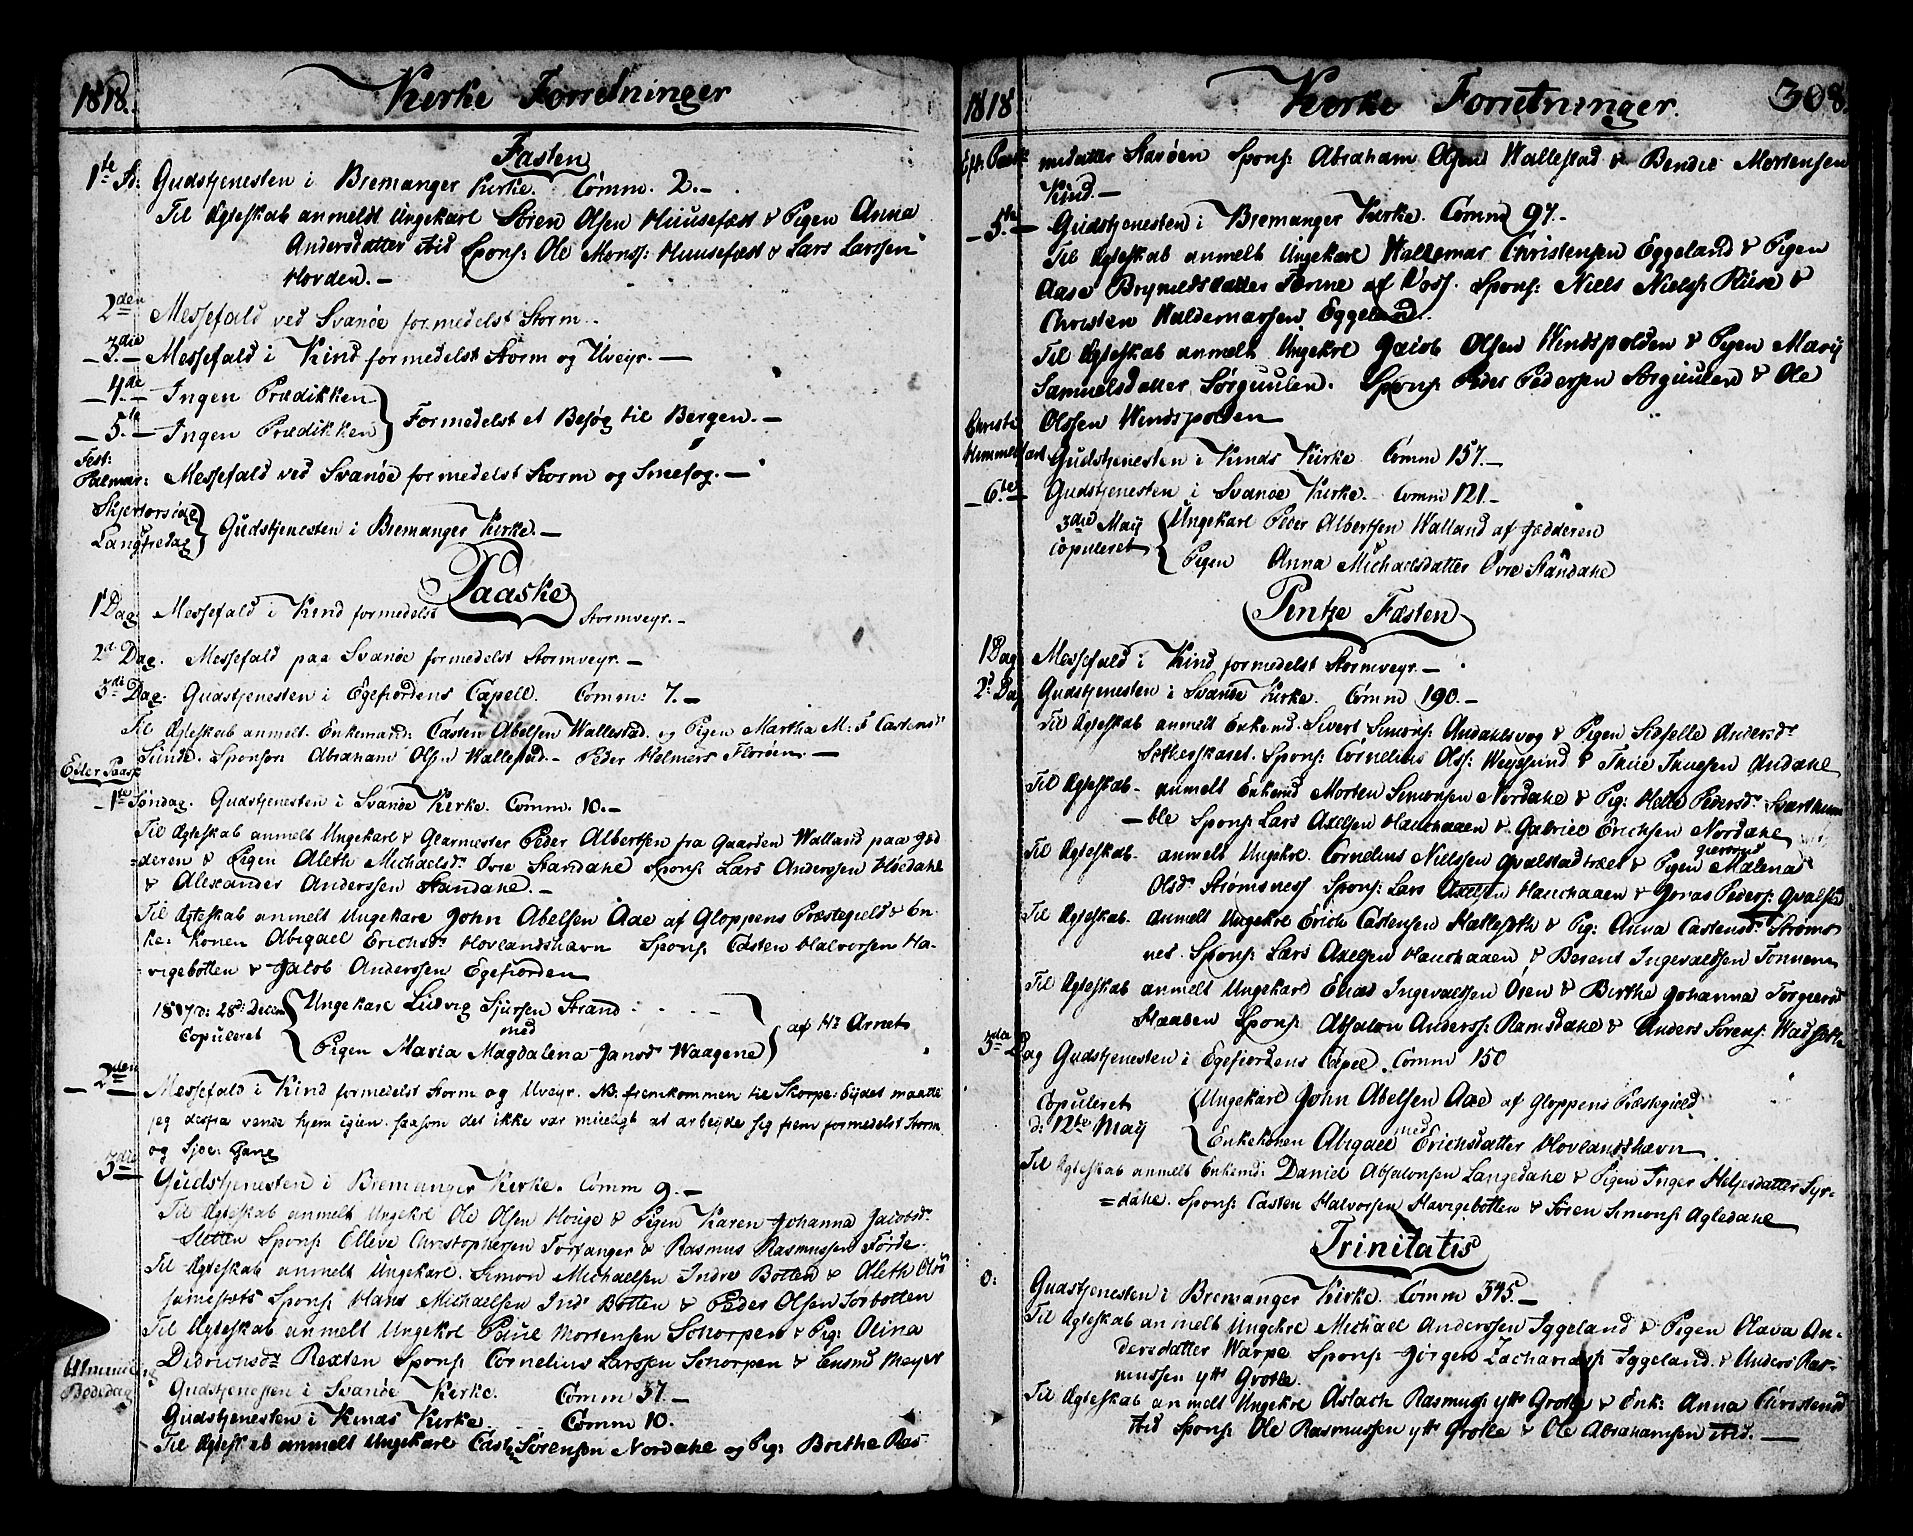 1818. Kirke Forretninger
Fasten
1ste S: Gudstjenesten i Bremanger Kirke. Comm. 2.-
Til Ægteskab anmeldt Ungekarl Søren Olsen Huusefæst & Pigen Anna
Andersdatter ibid Spons: Ole Monss: Huusefæst & Lars Larssen
Hovden.-
2den Messefald ved Svanøe formedelst Storm.
-3die- Messefald i Kind formedelst Storm og Uveyr.-
-4de- Ingen Prædikken
-5te- Ingen Prædikken } Formedelst et Besøg til Bergen.-
Fest:
Palmar: Messefald ved Svanøe formedelst Storm og Sneefog.-
Skjertorsdag
Langfredag } Gudstjenesten i Bremanger Kirke.-
Paaske
1 Dag Messefald i Kind formedelst Stormveyr.-
2d Dag. Messefald paa Svanøe formedelst Stormveyr.-
3di Dag. Gudstjenesten i Egefiordens Capell. Comm: 7.-
Til Ægteskab anmelt Enkemand: Casten Abelsen Wallestad og Pigen Martha M: Castensdr
Sunde. Sponson Abraham Olsen Wallestad.- Peder Helmers Florøen.-
Efter Paask
-1ste Søndag. Gudstjenesten i Svanøe Kirke. Comm. 10.-
Til Ægteskab anmelt Ungekarl & Glarmester Peder Albertsen fra Gaarden Walland paa Jæd
=deren & Pigen Aleth Michaelsdr Øvre Standahl Spons: Lars Anderssen Høedahl
& Alexander Anderssen Standahl.-
Til Ægteskab anmelt Ungekarl John Abelsen Aae af Gloppens Præstegield & En-
ke: Konen Abigael Erichsdr Hovlandshavn Spons: Casten Halvorsen Ha-
vigebotten & Jacob Anderssen Egefiorden
1817 d: 28de Decem { Ungekarl Ludvig Sjursen Strand
Copuleret med } af Hr Arnet
Pigen Maria Magdalena Jansdr Waagene
-2den Messefald i Kind formedelst Storm og Uveyr. NB. fremkommen til Skorpe: Eydet maatte
jeg derfra vende hjem igien saasom det ikke var mueligt at arbeyde sig frem formedelst Storm
og Sjoe: Gang
3die Gudstjenesten i Bremanger Kirke. Comm 9.-
Til Ægteskab anmelt Ungekrl Ole Olsen Houge & Pigen Karen Johanna Jacobsdr
Sletten Spons: Elleve Christophersen Torfanger & Rasmus Rasmussen Førde
Til Ægteskab anmelt Ungekarl. Simon Michaelsen Indre Botten & Aleth Olsdr
Spons: Hans Michaelsen Indr Botten & Peder Olsen Sørbotten
Til Ægteskab anmelt Ungekrl Poul Mortensen Schorpen & Pig: Olina
Didrichsdr Rexten Spons: Cornelius Larssen Schorpen & Meyer
Almindelig
Bededag Gudstjenesten i Svanøe Kirke. Comm 37.-
Gudstjenesten i Kinds Kirke. Comm 10.
Til Ægteskab anmelt Ungekarl Casten Sørensen Nordahl og Pig: Birthe Ras-
1818 Kirke Forretninger. 308
Efth. Paask musdatter Starøen Spons: Abraham Olsen Wallestad & Bendix Mortensen
Kind.-
-5te- Gudstjenesten i Bremanger Kirke. Comm 97.-
Til Ægteskab anmelt Ungekarl Waldemar Christensen Eggeland & Pigen
Aase Brynildsdatter Tenne af Voss. Spons: Niels Niels: Riise &
Christen Waldemarssen Eggeland.
Til Ægteskab anmelt Ungekrl Jacob Olsen Windspolden & Pigen Mary
Samuelsdatter Sørguulen. Spons: Peder Pedersen Sørguulen & Ole
Olssen Windspolden
Christi
Himmelfart Gudstjenesten i Kinds Kirke. Comm 157.-
-6te- Gudstjenesten i Svanøe Kirke. Comm 121.-
3die May { Ungekarl Peder Albertsen Walland af Jædderen
Copuleret Pigen Anna Michaelsdatter Øvre Standahl
Pintze Fæsten
1 Dag Messefald i Kind formedelst Stormveyr.-
2d Dag Gudstjenesten i Svanøe Kirke. Comm 190.-
Til Ægteskab anmelt Enkemd. Sivert Simons: Andahlsvog & Pigen Sidselle Andersdr
Spons: Cornelius Olss: Weydsund & Thue Thuesen Andahl
Til Ægteskab anmelt Enkemd Morten Simonsen Nordahl & Pig: Helle Pedersdr Svarthum
-ble Spons: Lars Axelsen Hauchaaen & Gabriel Erichsen Nordahl
Til Ægteskab. anmelt Ungekrl. Cornelius Nielssen Qvalstadtræet & Pigen Malena
Olsdr Strømsnes Spons: Lars Axelsen Hauchaaen & Jonas Peders: Qvalsta
Til Ægteskab. anmelt Ungekrl Erich Castensen Hæллеseth & Pig: Anna Castensdr Strøms
nes. Spons: Lars Axelsen Hauchaaen & Berent Ingevaldsen Tonnem
Til Ægteskab anmelt Ungekarl Elias Ingevaldsen Osen & Birthe Johanna Torgersdr
Haaben Spons: Absalon Anderss: Ramsdahl & Anders Sørens: Wadseth
3die Dag Gudstjenesten i Egefiordens Capel. Comm 150
Copuleret { Ungekarl John Abelsen Aae af Gloppens Præstegield
d: 12te May med
Enkekonen Abigael Erichsdatter Hovlandshavn
Til Ægteskab anmelt Enkemd: Daniel Absalonsen Langedahl & Pigen Inger Heljesdatter Syr-
=dahl. Spons: Casten Halvorsen Havigebotten & Søren Simons: Agledahl
Trinitatis
0: Gudstjenesten i Bremanger Kirke. Comm 345.-
Til Ægteskab anmelt Ungekrl Michael Anderssen Iggeland & Pigen Olava An-
dersdatter Warpe Spons: Jørgen Zacharias: Iggeland. & Anders Ras-
mussen ytt Grotle.
Til Ægteskab anmelt Ungekrl Aslach Rasmus: ytt Grotle & Enk: Anna Christensdr
ibid Spons: Ole Rasmussen ytt Grotle & Ole Abrahamsen ibid.-